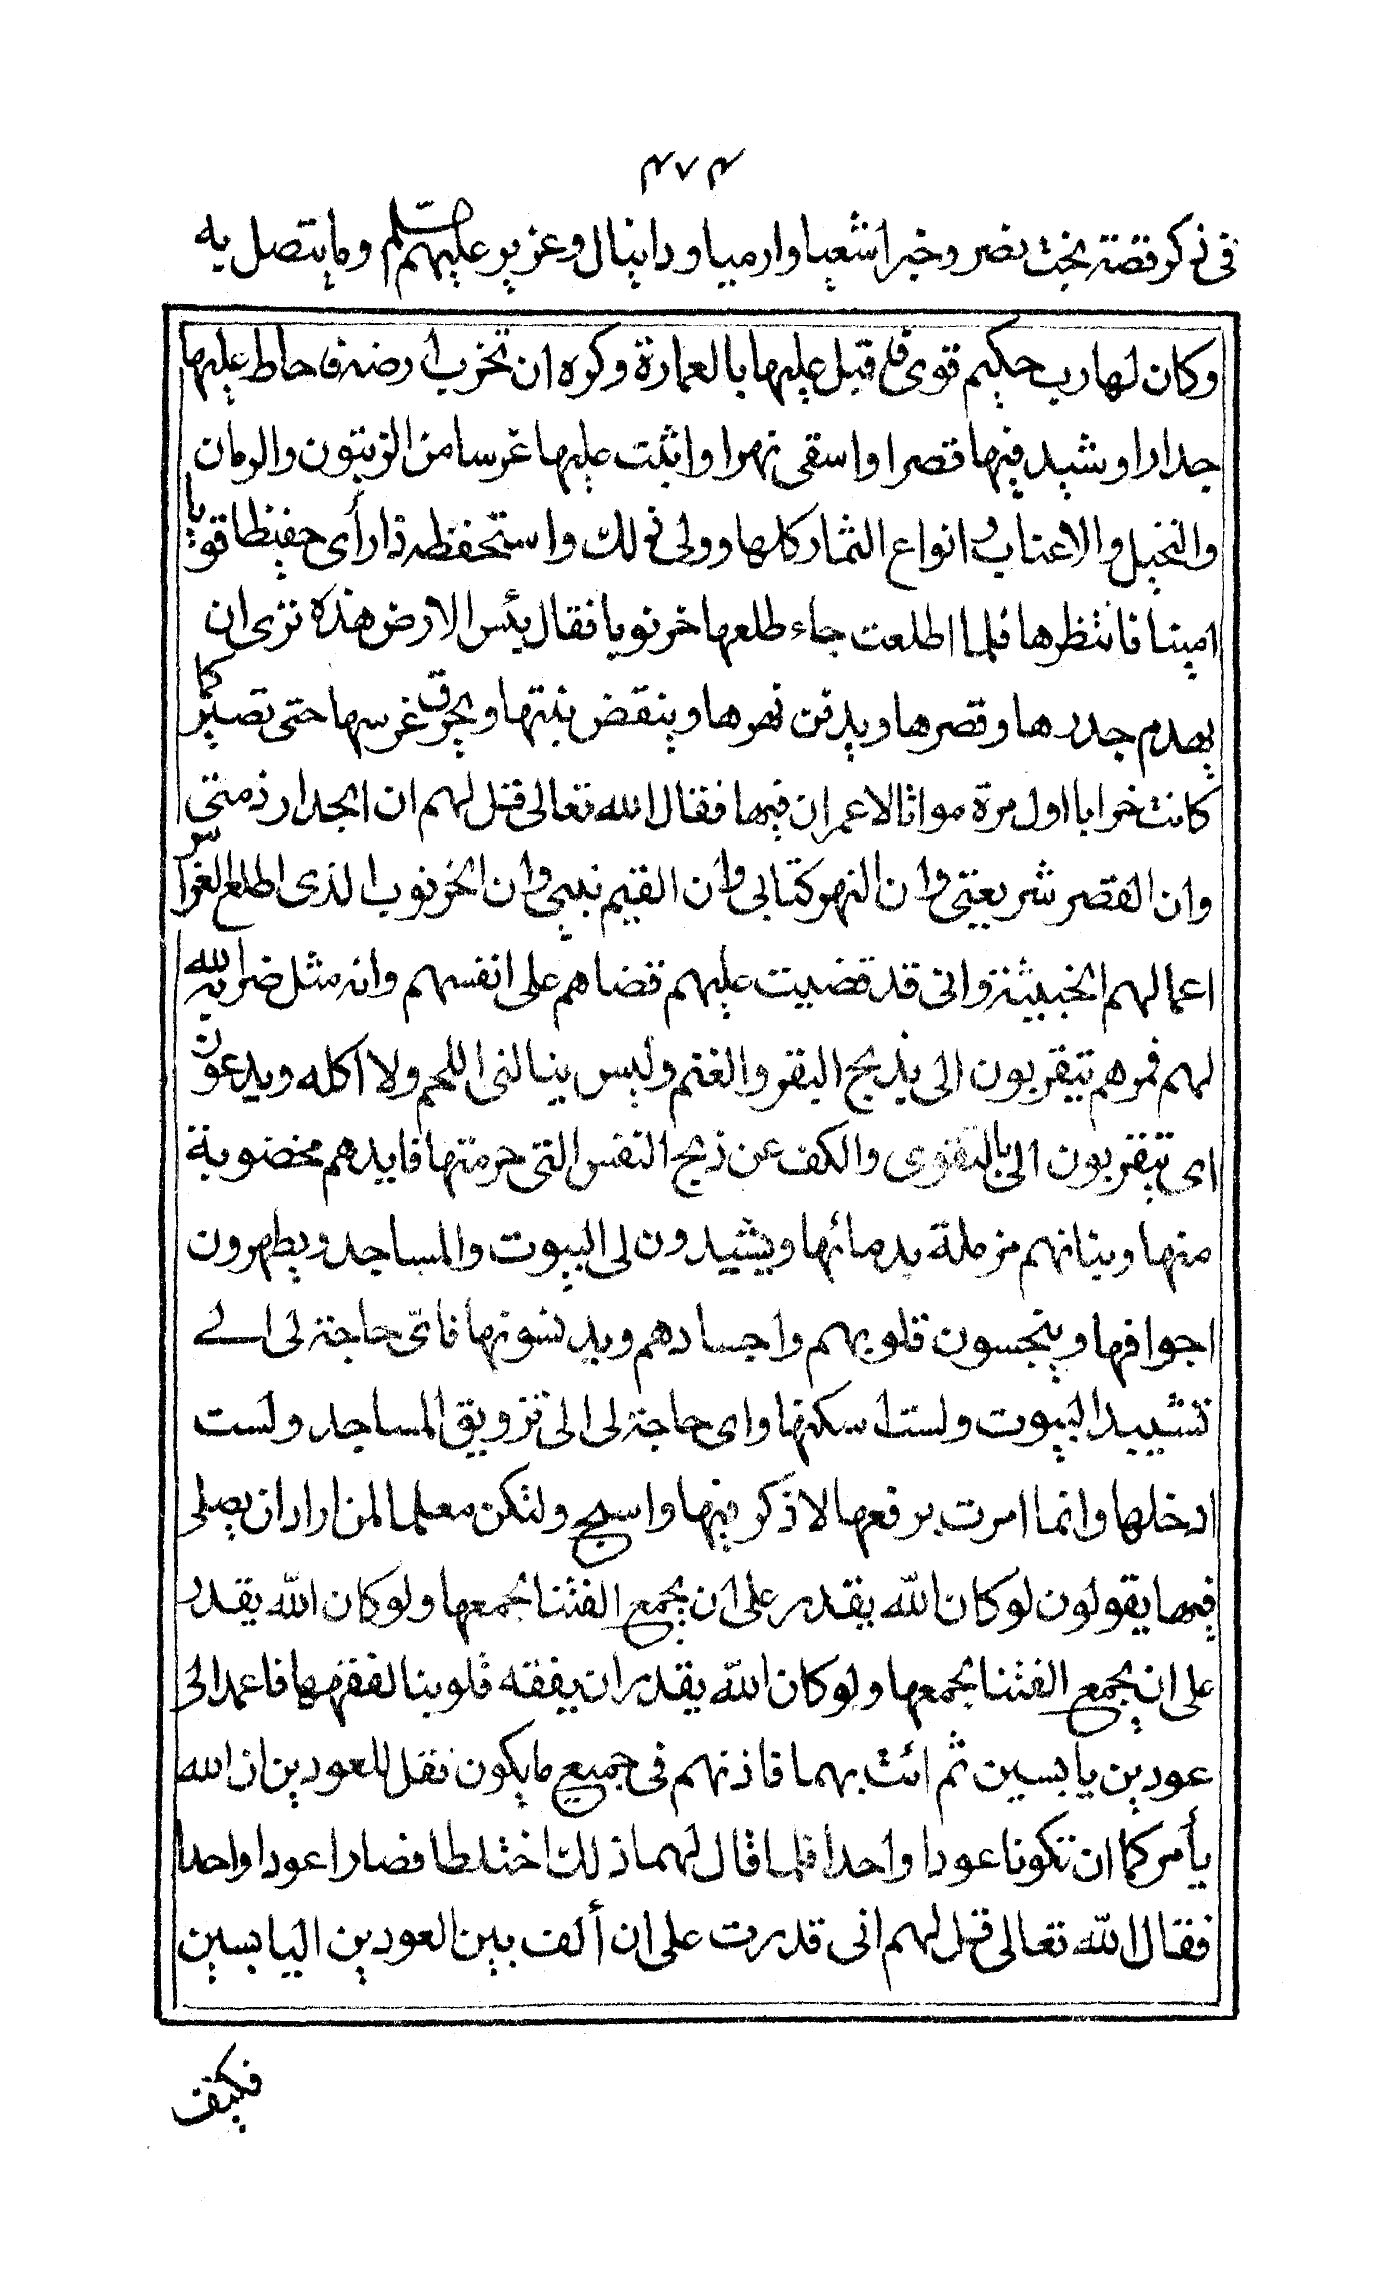 ٤٧٤
فى ذكر قصة بخت نصر وخبر اشعيا وارميا ودانيال وعزير عليهم السلم وما يتصل به
وكان لها رب حكيم قوى فاقبل عليها بالعمارة وكره ان تخرب ارضه فاحاط عليها
جدارا وشيد فيها قصرا واسقى نهرا وانبت عليها غرسا من الزيتون والرمان
والنخيل والاعناب وانواع الثمار كلها وولى ذلك واستحفظه ذا رأى حفيظا قويا
امينا فانتظرها فلما اطلعت جاء طلعها خرنوبا فقال بئس الارض هذه نرى ان
يهدم جدرها وقصرها ويدفن نهرها وينقض نبتها ويحرق غرسها حتى تصير كما
كانت خرابا اول مرة مواتا لا عمران فيها فقال الله تعالى قل لهم ان الجدار ذمتى
وان القصر شريعتى وان النهر كتابى وان القيم نبيى وان الخرنوب الذى اطلع الغراس
اعمالهم الخبيثة وانى قد قضيت عليهم قضاهم على انفسهم وانه مثل ضرابه الله
لهم فمرهم يتقربون الى بذبح البقر والغنم وليس ينالنى اللحم ولا آكله ويدعون
اى يتقربون الى بالتقوى والكف عن ذبح النفس التى حرمتها فايدهم مخضوبة
منها وبنانهم مزملة بدمائها ويشيدون لى البيوت والمساجد ويطهرون
اجوافها وينجسون قلوبهم واجسادهم ويدنسونها فاى حاجة لى الى
تشييد البيوت ولست اسكنها واى حاجة لى الى تزويق المساجد ولست
ادخلها وانما امرت برفعها لاذكر فيها واسبح ولتكن معلما لمن اراد ان يصلى
فيها يقولون لو كان الله يقدر على ان يجمع الفتنا لجمعها ولو كان الله يقدر
على ان يجمع الفتنا لجمعها ولو كان الله يقدر ان يفقه قلوبنا لفقهها فاعمد الى
عودين يابسين ثم ائت بهما فاذنهم فى جميع ما يكون نقل للعودين ان الله
يأمركما ان تكونا عودا واحدا فلما قال لهما ذلك اختلطا فصارا عودا واحدا
فقال الله تعالى قل لهم انى قدرت على ان أألف بين العودين اليابسين
فكيف